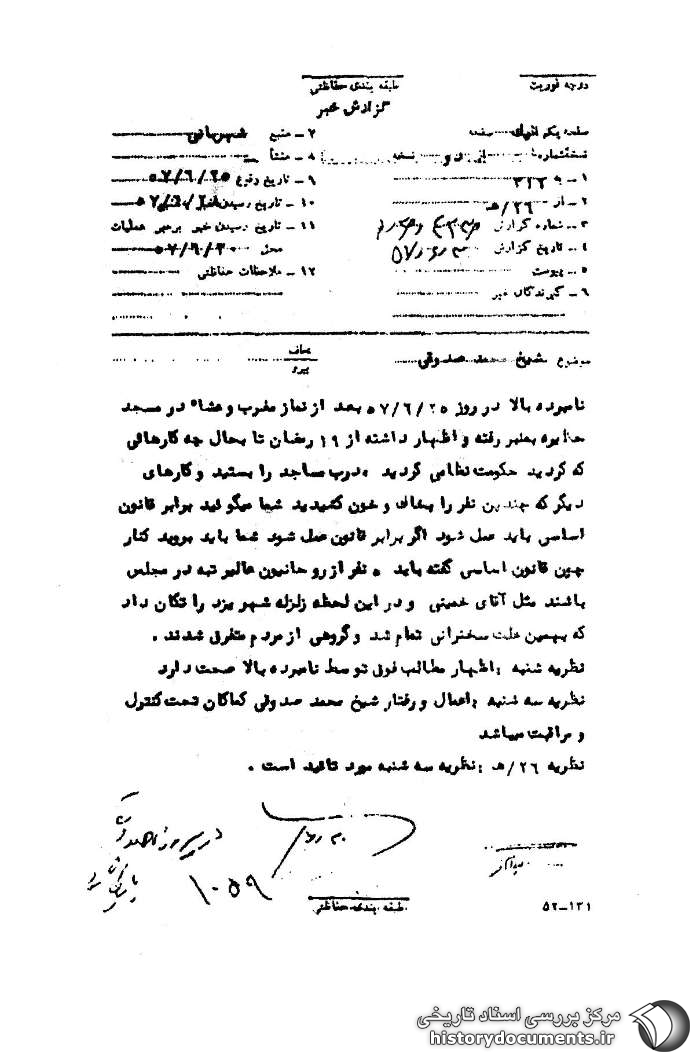 درجه فوریت
طبقه بندی حفاظتی
گزارش خبر
صفحه یکم از صفحه
نسخه شماره از نسخه
۱ – به ۳۲۲
۲ – از ۲۶/ﻫ
۳ – شماره گزارش
۴ – تاریخ گزارش
۵ – پیوست
۶ – گیرندگان خبر
۷ – منبع شهربانی
۸ – منشأ
۹ – تاریخ وقوع ۵۷/۶/۲۵
۱۰ – تاریخ رسیدن خبر ۵۷/۶/۲۸
۱۱ – تاریخ رسیدن خبر برهبر عملیات
محل ۵۷/۶/۳۰
۱۲ – ملاحظات حفاظتی
موضوع شیخ محمد صدوقی
نامبرده بالا در روز ۵۷/۶/۲۵ بعد از نماز مغرب و عشاء در مسجد
حظیره بمنبر رفته و اظهار داشته از ۱۹ رمضان تا بحال چه کارهائی
که کردید حکومت نظامی کردید ، درب مساجد را بستید و کارهای
دیگر که چندین نفر را بخاک و خون کشیدید شما میگوئید برابر قانون
اساسی باید عمل شود اگر برابر قانون عمل شود شما باید بروید کنار
چون قانون اساسی گفته باید ۵ نفر از روحانیون عالیرتبه در مجلس
باشند مثل آقای خمینی و در این لحظه زلزله شهر یزد را تکان داد
که بهمین علت سخنرانی تمام شد و گروهی از مردم متفرق شدند .
نظریه شنبه : اظهار مطالب فوق توسط نامبرده بالا صحت دارد
نظریه سه شنبه : اعمال و رفتار شیخ محمد صدوقی کماکان تحت کنترل
و مراقبت میباشد
نظریه ۲۶/ﻫ : نظریه سه شنبه مورد تائید است .
در پرونده صدوقی
۱۰۵۹
طبقه بندی حفاظتی
۵۲–۱۳۱
مرکز بررسی اسناد تاریخی
historydocuments.ir